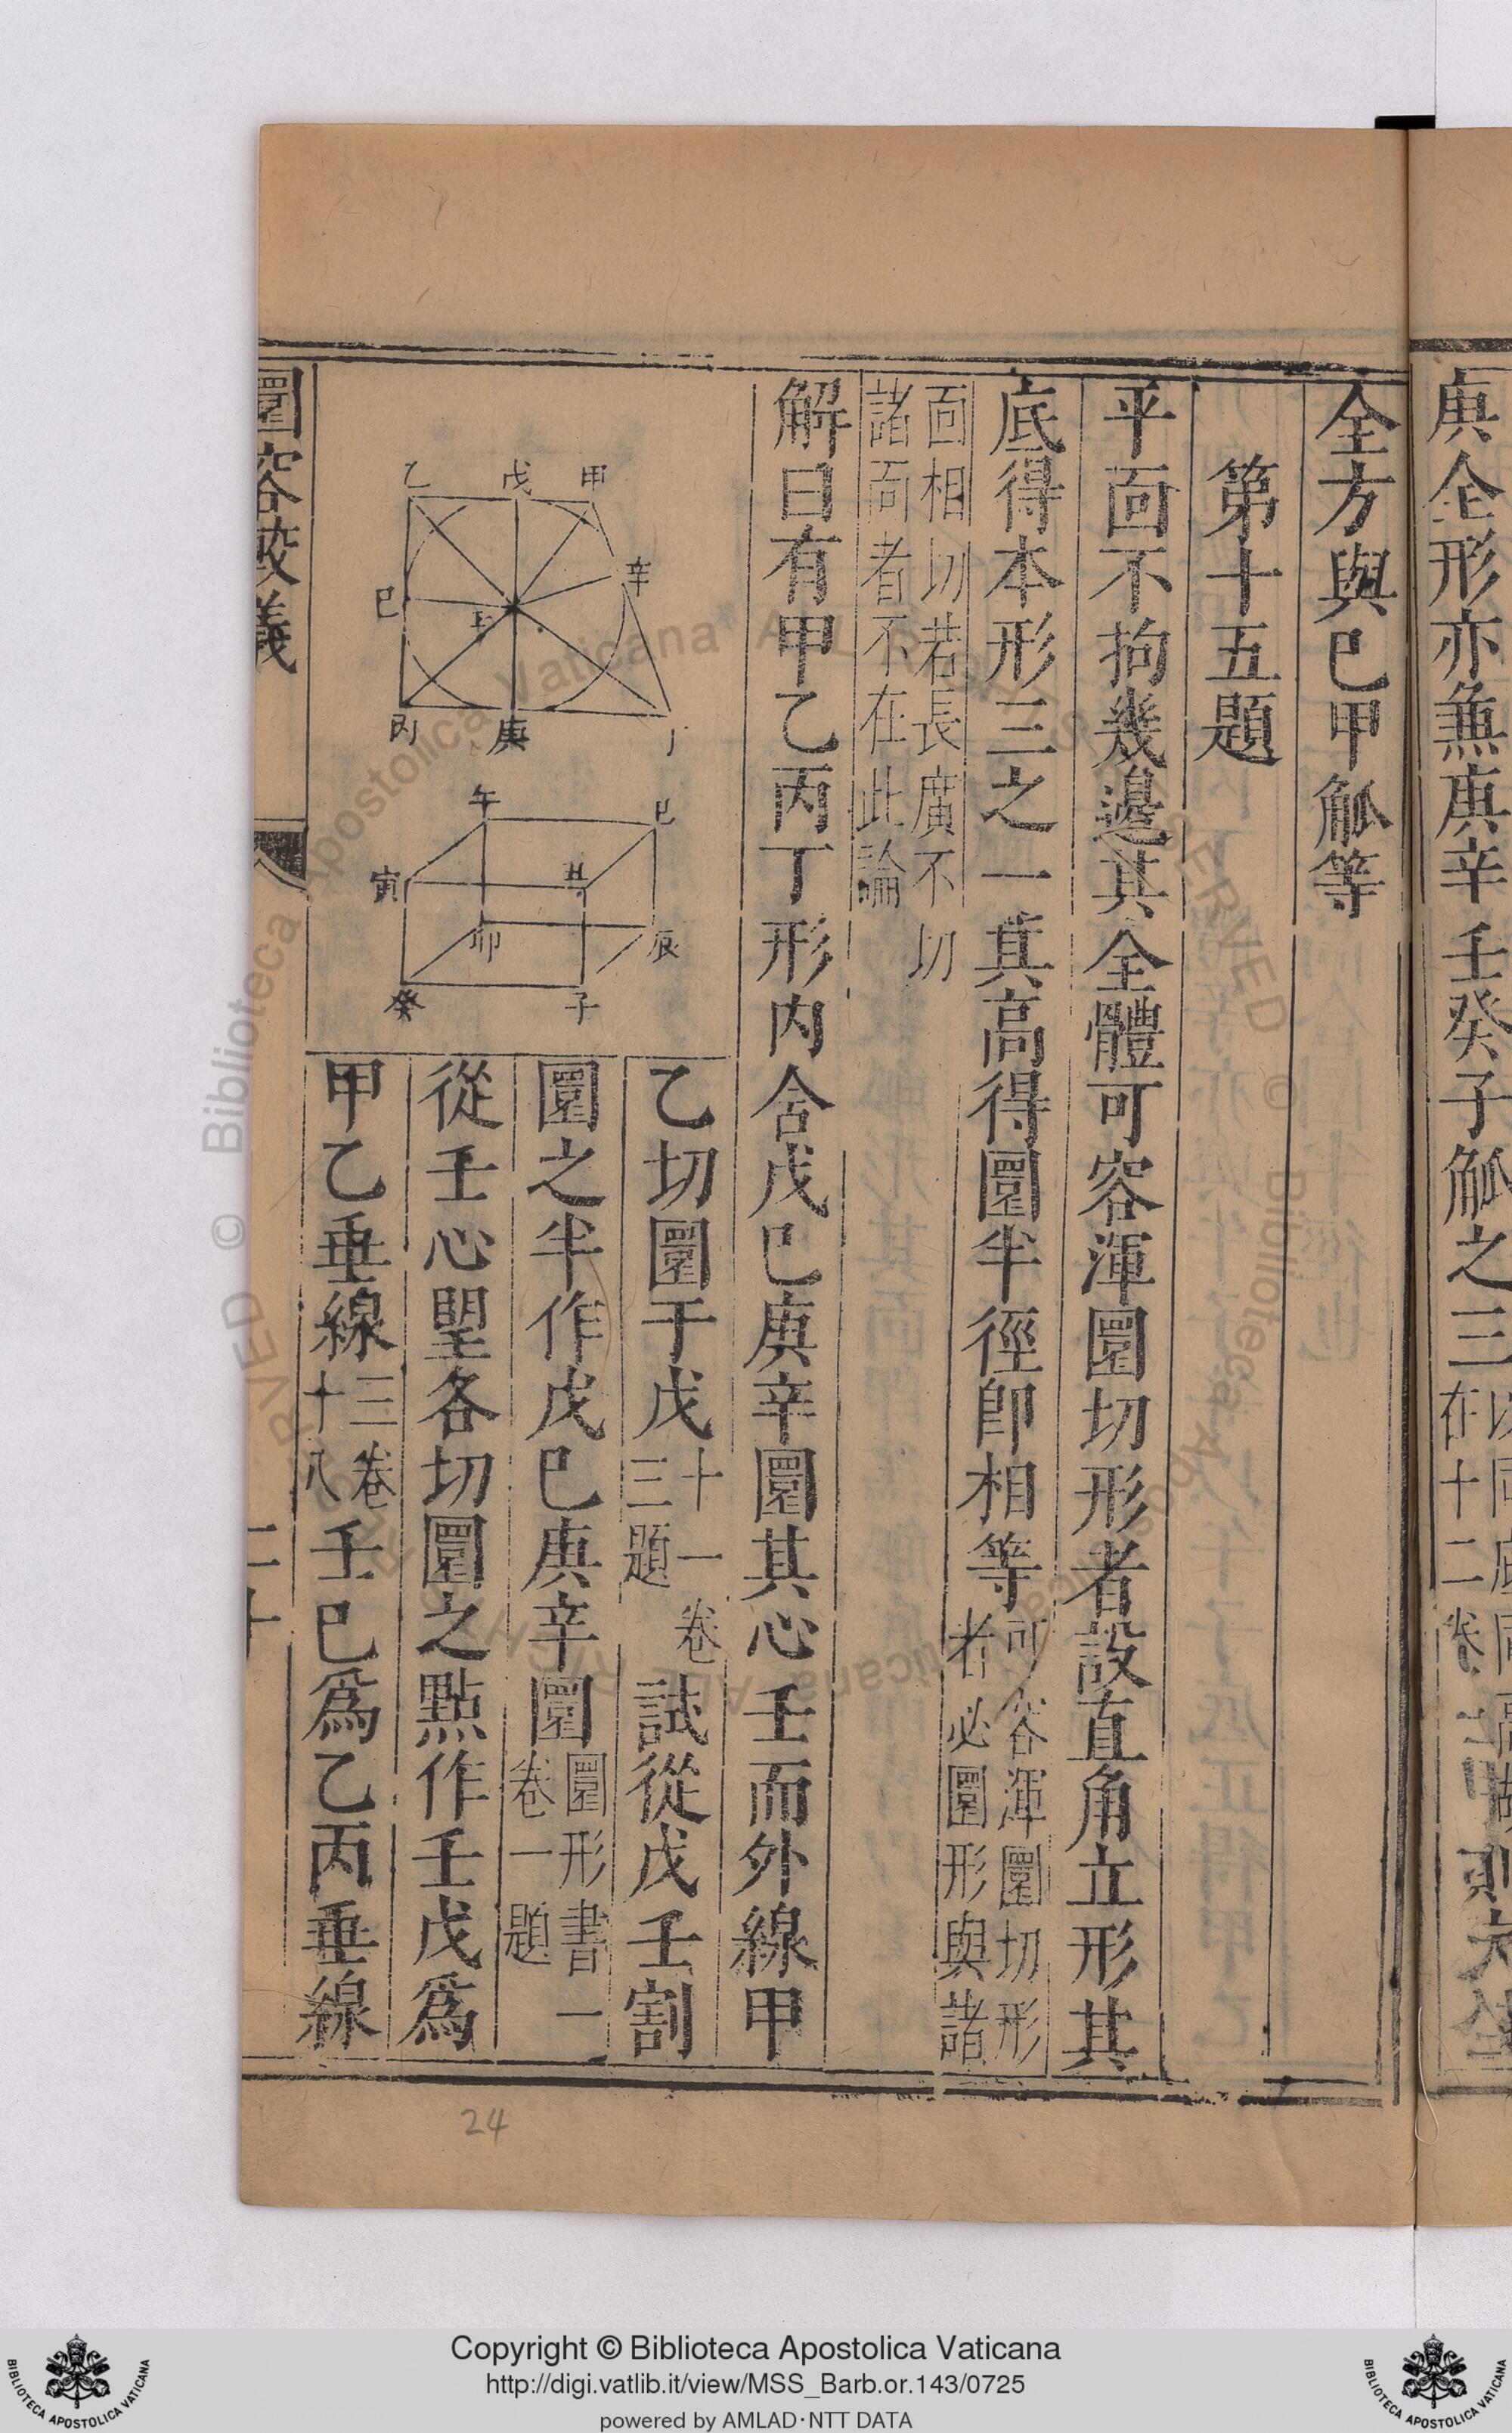 庚全形亦無庚辛壬癸子觚之三
全方與巳甲觚等
第十五題
平面不拘幾邊其全體可容渾圜切形者設直角立形其
底得本形三之一其高得圜半徑卽相等可容渾圜切形
者必圜形與諸
面相切若長廣不切
諸面者不在此論
解曰有甲乙丙丁形内含戊巳庚辛圜其心壬而外線甲
乙切圜于戊十一卷
三題試從戊壬割
圜之半作戊巳庚辛圜圜形書一
卷一題
從壬心望各切圜之點作壬戊爲
甲乙垂線三卷
十八壬巳爲乙丙垂線
乙 戊 甲
辛
巳 壬
丙 庚 丁
午 巳
寅 丑
卯 辰
癸 子
圜容較義
二十
24
Copyright © Biblioteca Apostolica Vaticana
http://digi.vatlib.it/view/MSS_Barb.or.143/0725
powered by AMLAD·NTT DATA
BIBLIOTECA APOSTOLICA VATICANA
BIBLIOTECA APOSTOLICA VATICANA